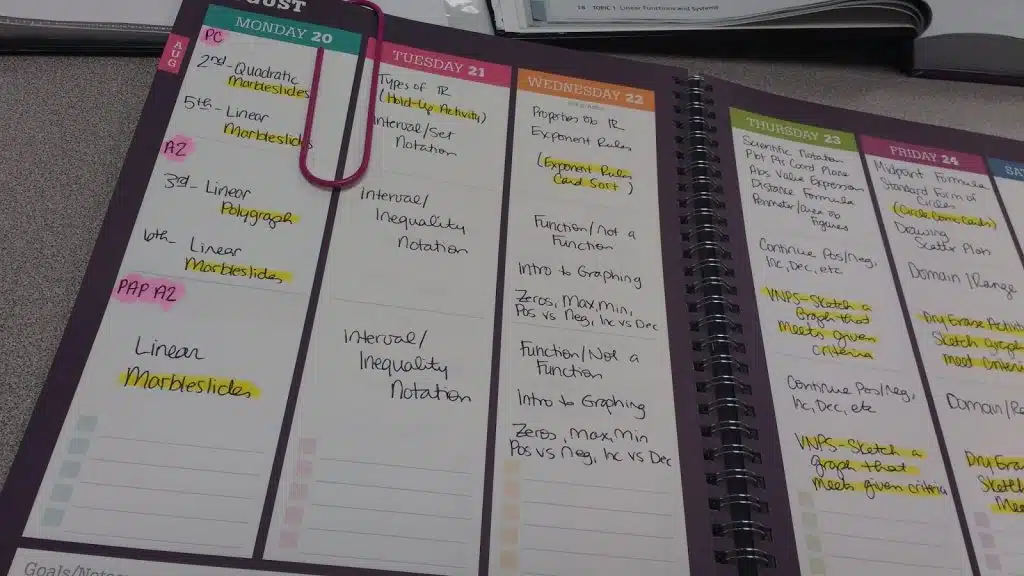 18 TOPIC 1 Linear Functions and Systems
UST
AUG
MONDAY 20
PC
2nd - Quadratic
Marbleslides
5th - Linear
Marbleslides
A2
3rd - Linear
Polygraph
6th - Linear
Marbleslides
PAP A2
Linear
Marbleslides
TUESDAY 21
Types of IR
(Hold-Up Activity)
Interval/Set
Notation
Interval/
Inequality
Notation
Interval/
Inequality
Notation
WEDNESDAY 22
Properties of IR
Exponent Rules
(Exponent Rules
Card Sort)
Function/Not a
Function
Intro to Graphing
Zeros, Max, Min,
Pos vs Neg, Inc vs Dec
Function/Not a
Function
Intro to Graphing
Zeros, Max, Min
Pos vs Neg, Inc vs Dec
THURSDAY 23
Scientific Notation
Plot Pt Coord Plane
Abs Value Expression
Distance Formula
Perimeter/Area of
Figures
Continue Pos/Neg,
Inc, Dec, etc
VNPS-Sketch a
graph that
meets given
criteria
Continue Pos/Neg,
Inc, Dec, etc
VNPS-Sketch a
graph that
meets given criteria
FRIDAY 24
Midpoint Formula
Standard Form of
Circles
Drawing
Scatter
Domain/Range
Dry Erase Activit
Sketch graph
meet criteri
Domain/R
Dry Eras
Sketch
Mee
SAT
Goals/Notes